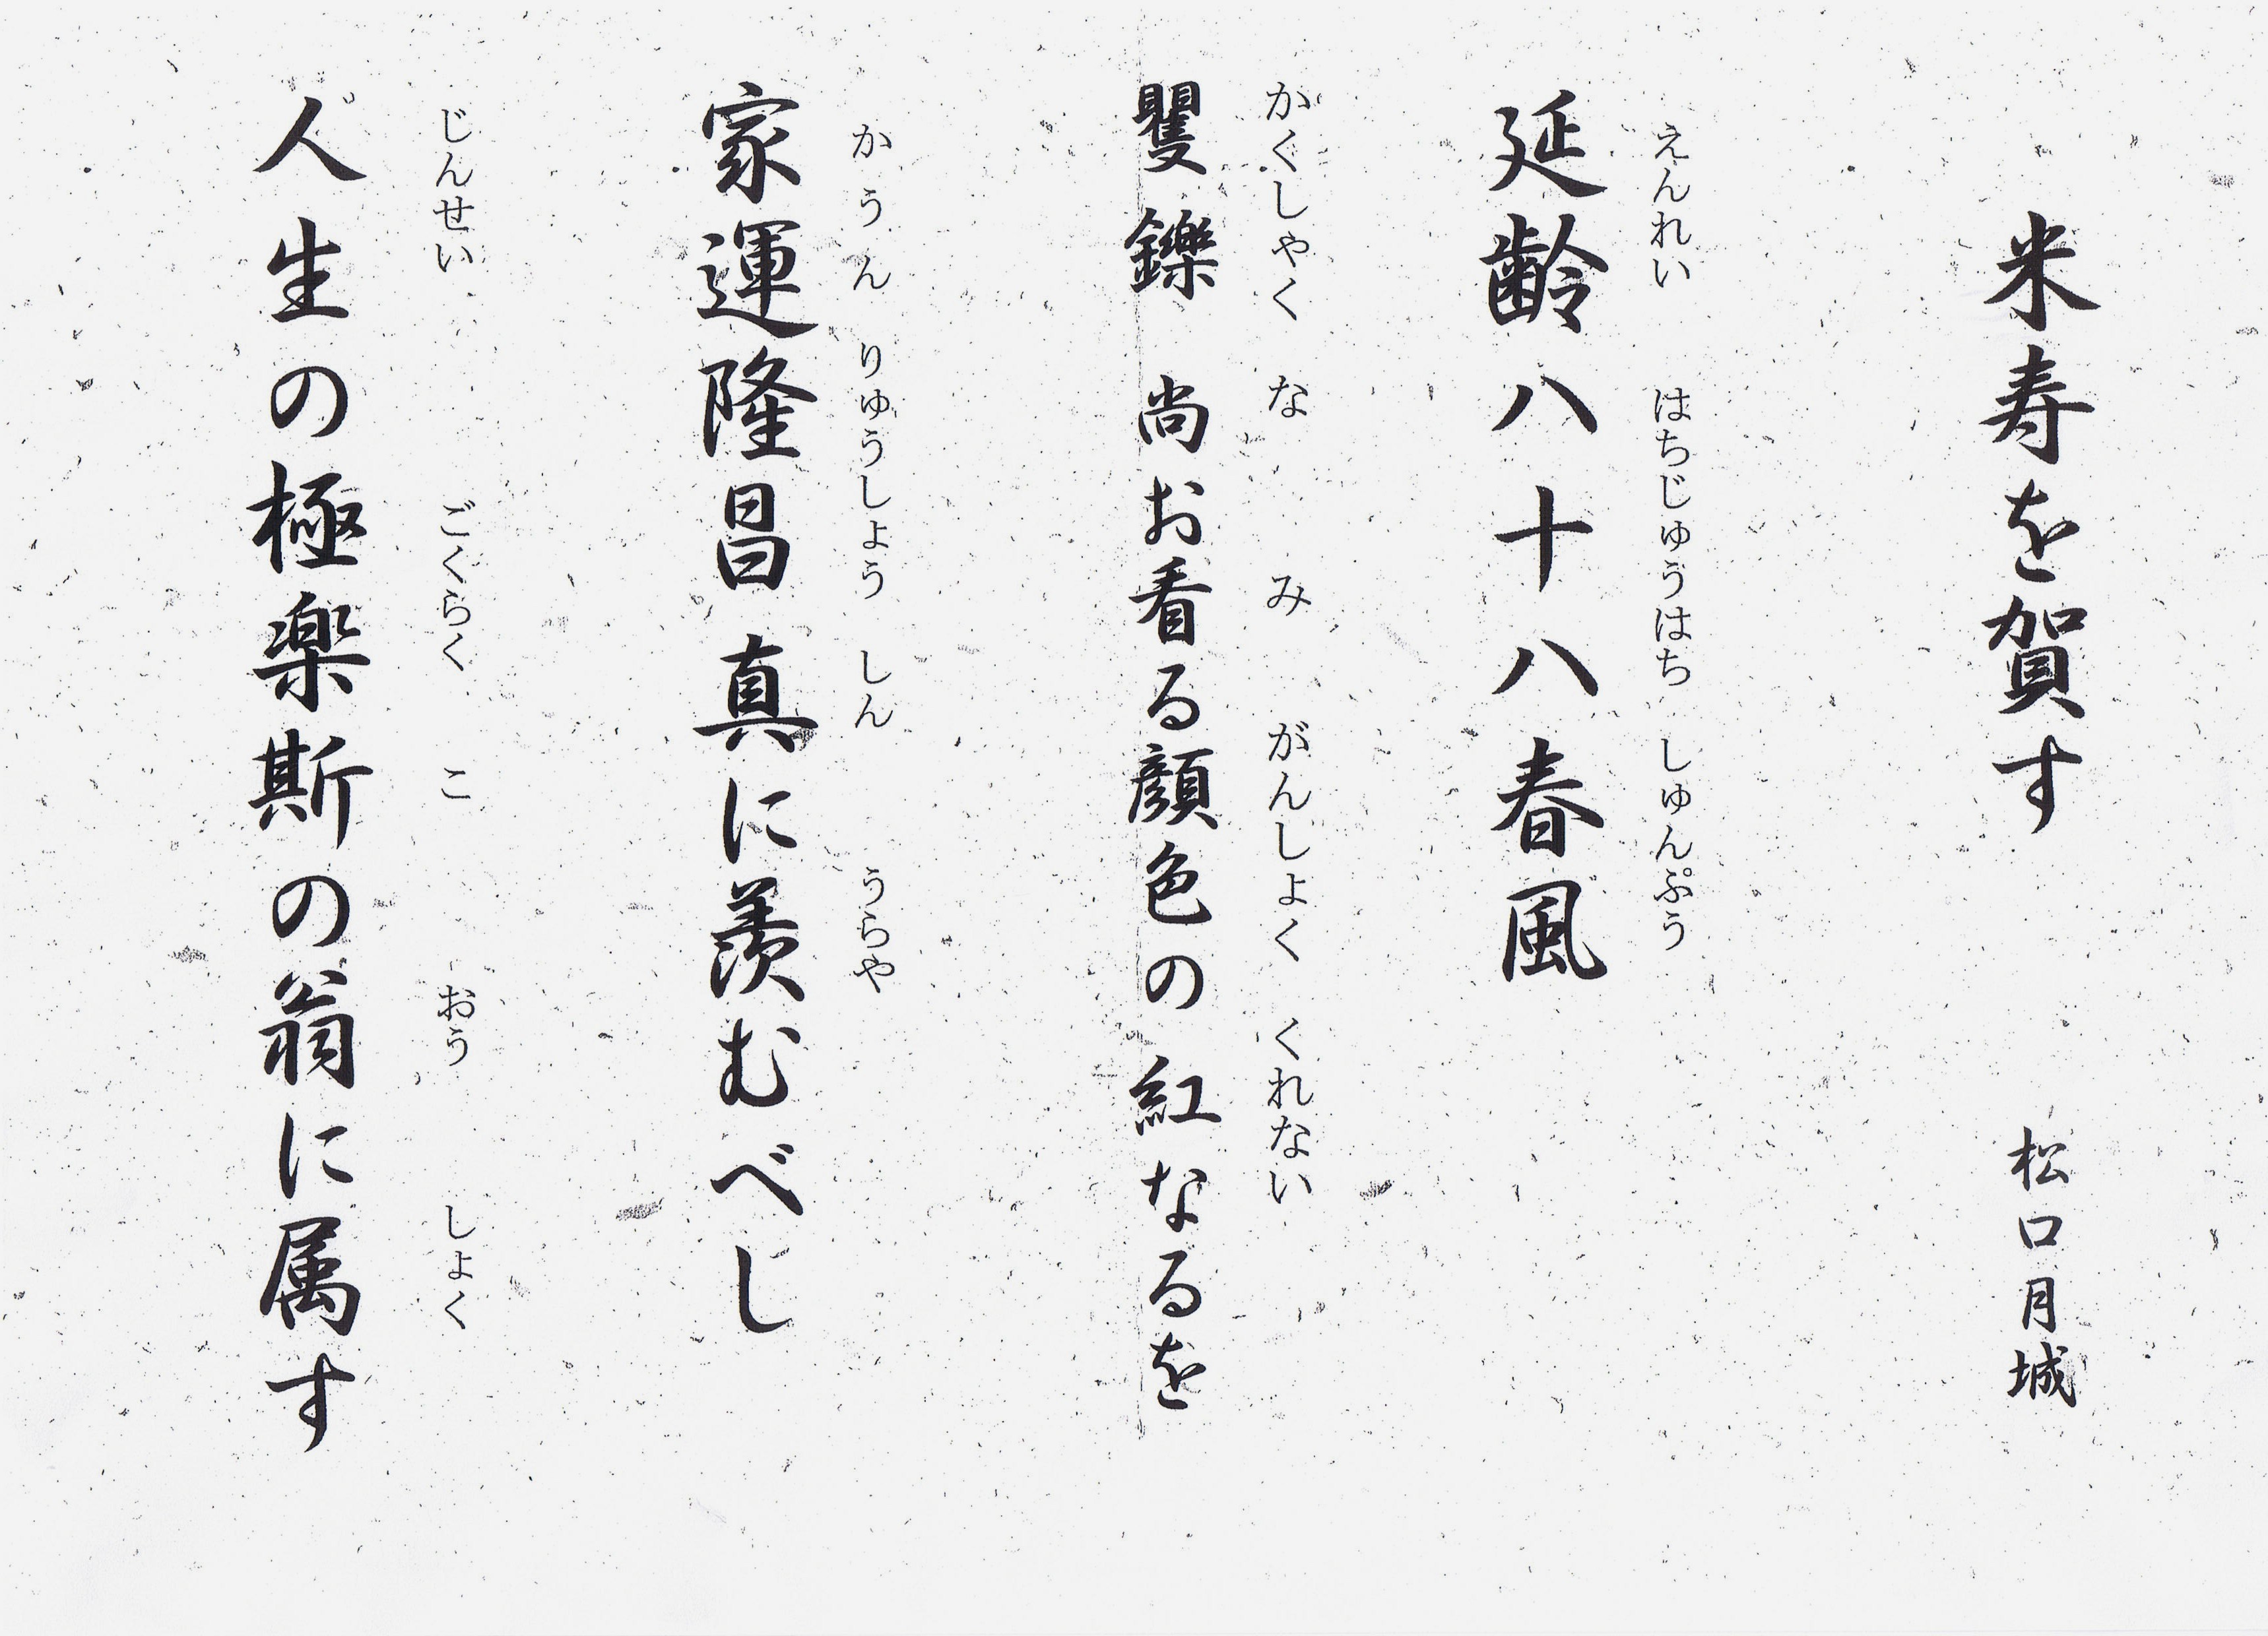 米寿を賀す 松口月城
えんれい はちじゅうはち しゅんぷう
延齢八十八春風
かくしゃく な み がんしょく くれない
矍鑠尚お看る顔色の紅なるを
かうん りゅうしょう しん うらや
家運隆昌真に羨むべし
じんせい ごくらく こ おう しょく
人生の極楽斯の翁に属す